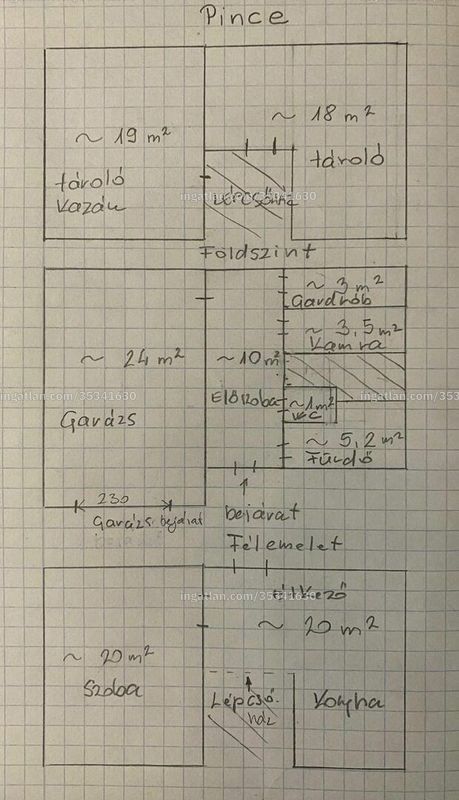 Pince
~ 19 m²
tároló
kazán
~ 18 m²
tároló
LÉPCSŐHÁZ
ingatlan.com/35341630
Földszint
~ 24 m²
Garázs
~10 m²
Előszoba
~ 3 m²
Gardrób
~ 3,5 m²
Kamra
~1 m²
WC
~ 5,2 m²
Fürdő
ingatlan.com/35341630
ingatlan.com/35341630
230
Garázs bejárat
bejárat
Félemelet
~ 20 m²
Szoba
étkező
~ 20 m²
ingatlan.com/35341630
Lépcső
ház
Konyha